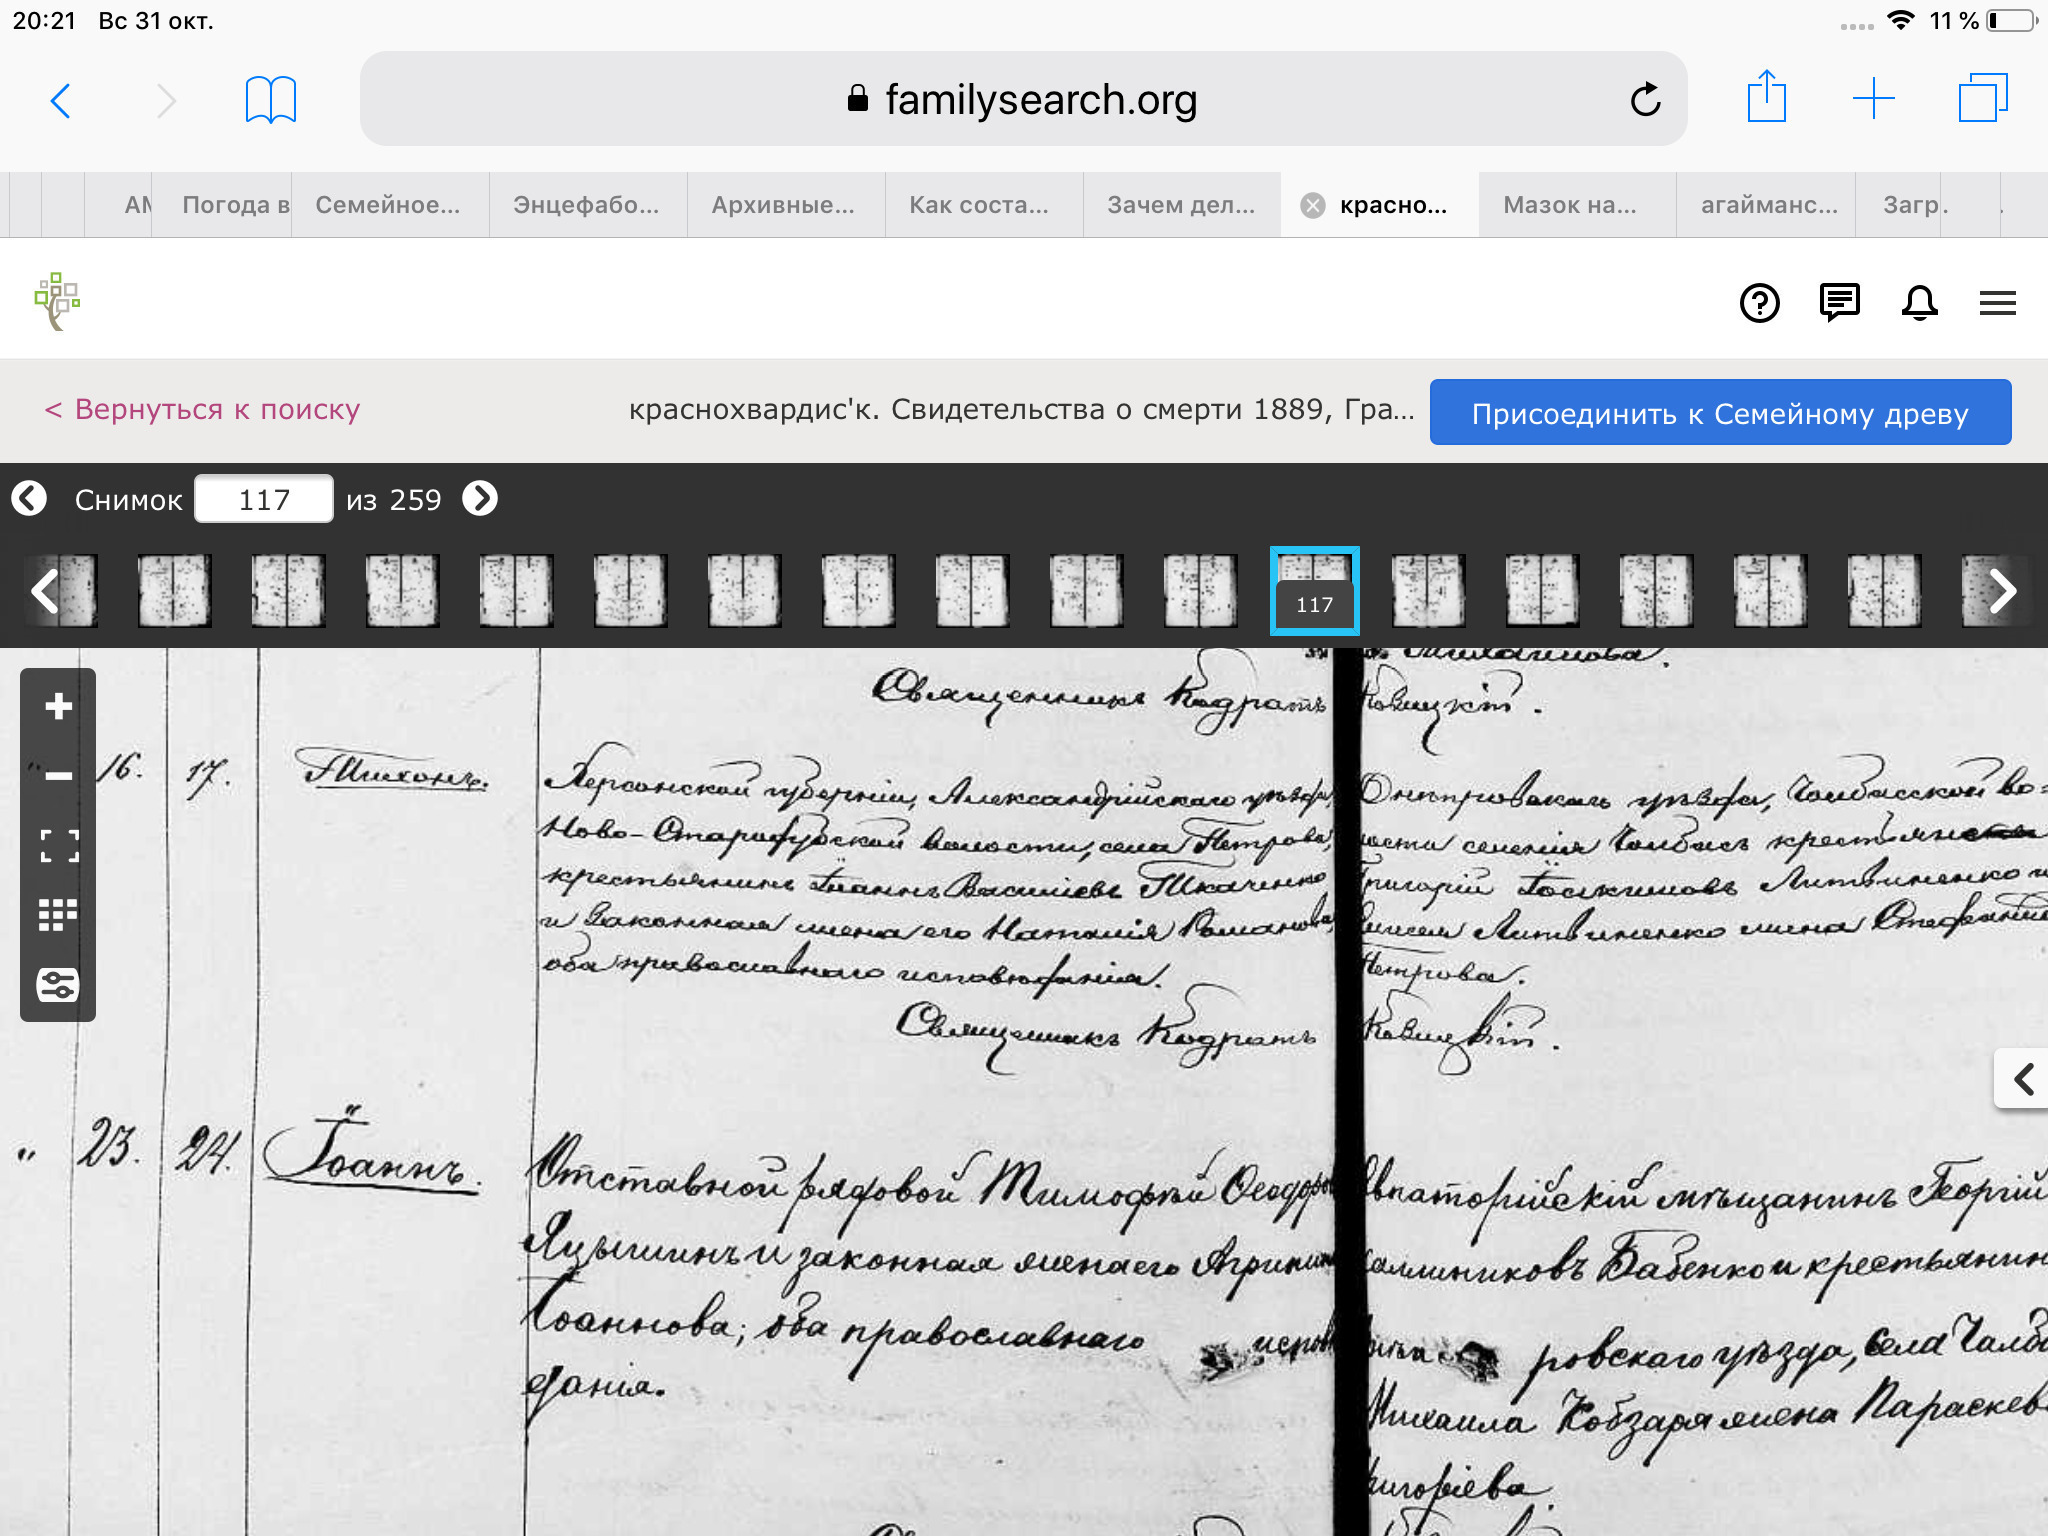 20:21 Вс 31 окт. 11 %
familysearch.org
АМ Погода в Семейное... Энцефабо... Архивные... Как соста... Зачем дел... красно... Мазок на... агайманс... Загр.
< Вернуться к поиску краснохвардис'к. Свидетельства о смерти 1889, Гра... Присоединить к Семейному древу
Снимок 117 из 259
117
Михайлова.
Священникъ Кодратъ Ковицкій.
" 16. 17. Тихонъ. Херсонской губерніи, Александрійскаго уѣзда,
Ново-Стародубской волости, села Петрова,
крестьянинъ Іоаннъ Василіевъ Ткаченко
и законная жена его Наталія Романова,
оба православнаго исповѣданія.
Священникъ Кодратъ Ковицкій.
Днѣпровскаго уѣзда, Чолбасской во=
лости селенія Чолбасъ
Григорій Іоакимовъ Литвиненко и
Литвиненко жена Стефанида
Петрова.
" 23. 24. Іоаннъ. Отставной рядовой Тимофѣй Ѳеодоровъ
Яцышинъ и законная жена его Агрипина
Іоаннова; оба православнаго исповѣ
данія.
Евпаторійскій мѣщанинъ Георгій
Каллиниковъ Бабенко и крестьянин
ровскаго уѣзда, села Чалба
Михаила Кобзаря жена Параскева
Григоріева.